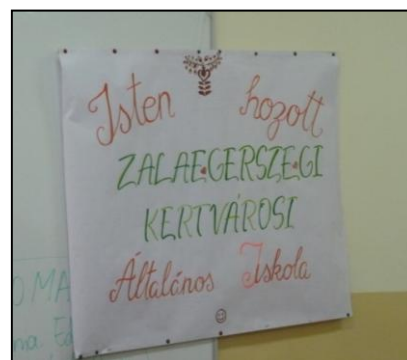 Isten hozott
ZALAEGERSZEGI
KERTVÁROSI
Általános Iskola